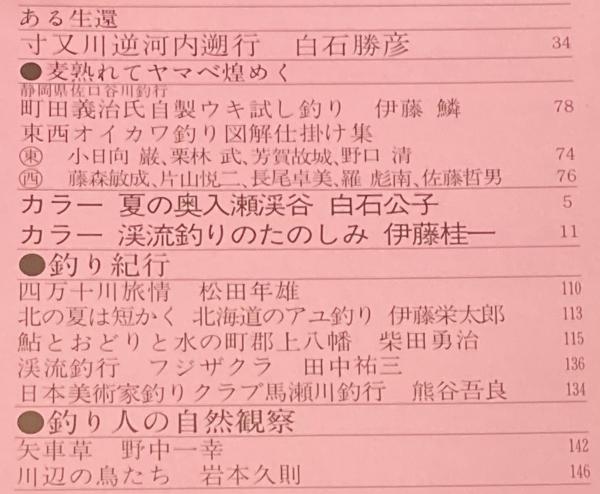 ある生還
寸又川逆河内遡行 白石勝彦 34
●麦熟れてヤマベ煌めく
静岡県佐口谷川釣行
町田義治氏自製ウキ試し釣り 伊藤 鱗 78
東西オイカワ釣り図解仕掛け集
㊍ 小日向 巌、栗林 武、芳賀故城、野口 清 74
㊄ 藤森敏成、片山悦二、長尾卓美、羅 彪南、佐藤哲男 76
カラー 夏の奥入瀬渓谷 白石公子 5
カラー 渓流釣りのたのしみ 伊藤桂一 11
●釣り紀行
四万十川旅情 松田年雄 110
北の夏は短かく 北海道のアユ釣り 伊藤栄太郎 113
鮎とおどりと水の町郡上八幡 柴田勇治 115
渓流釣行 フジザクラ 田中祐三 136
日本美術家釣りクラブ馬瀬川釣行 熊谷吾良 134
●釣り人の自然観察
矢車草 野中一幸 142
川辺の鳥たち 岩本久則 146